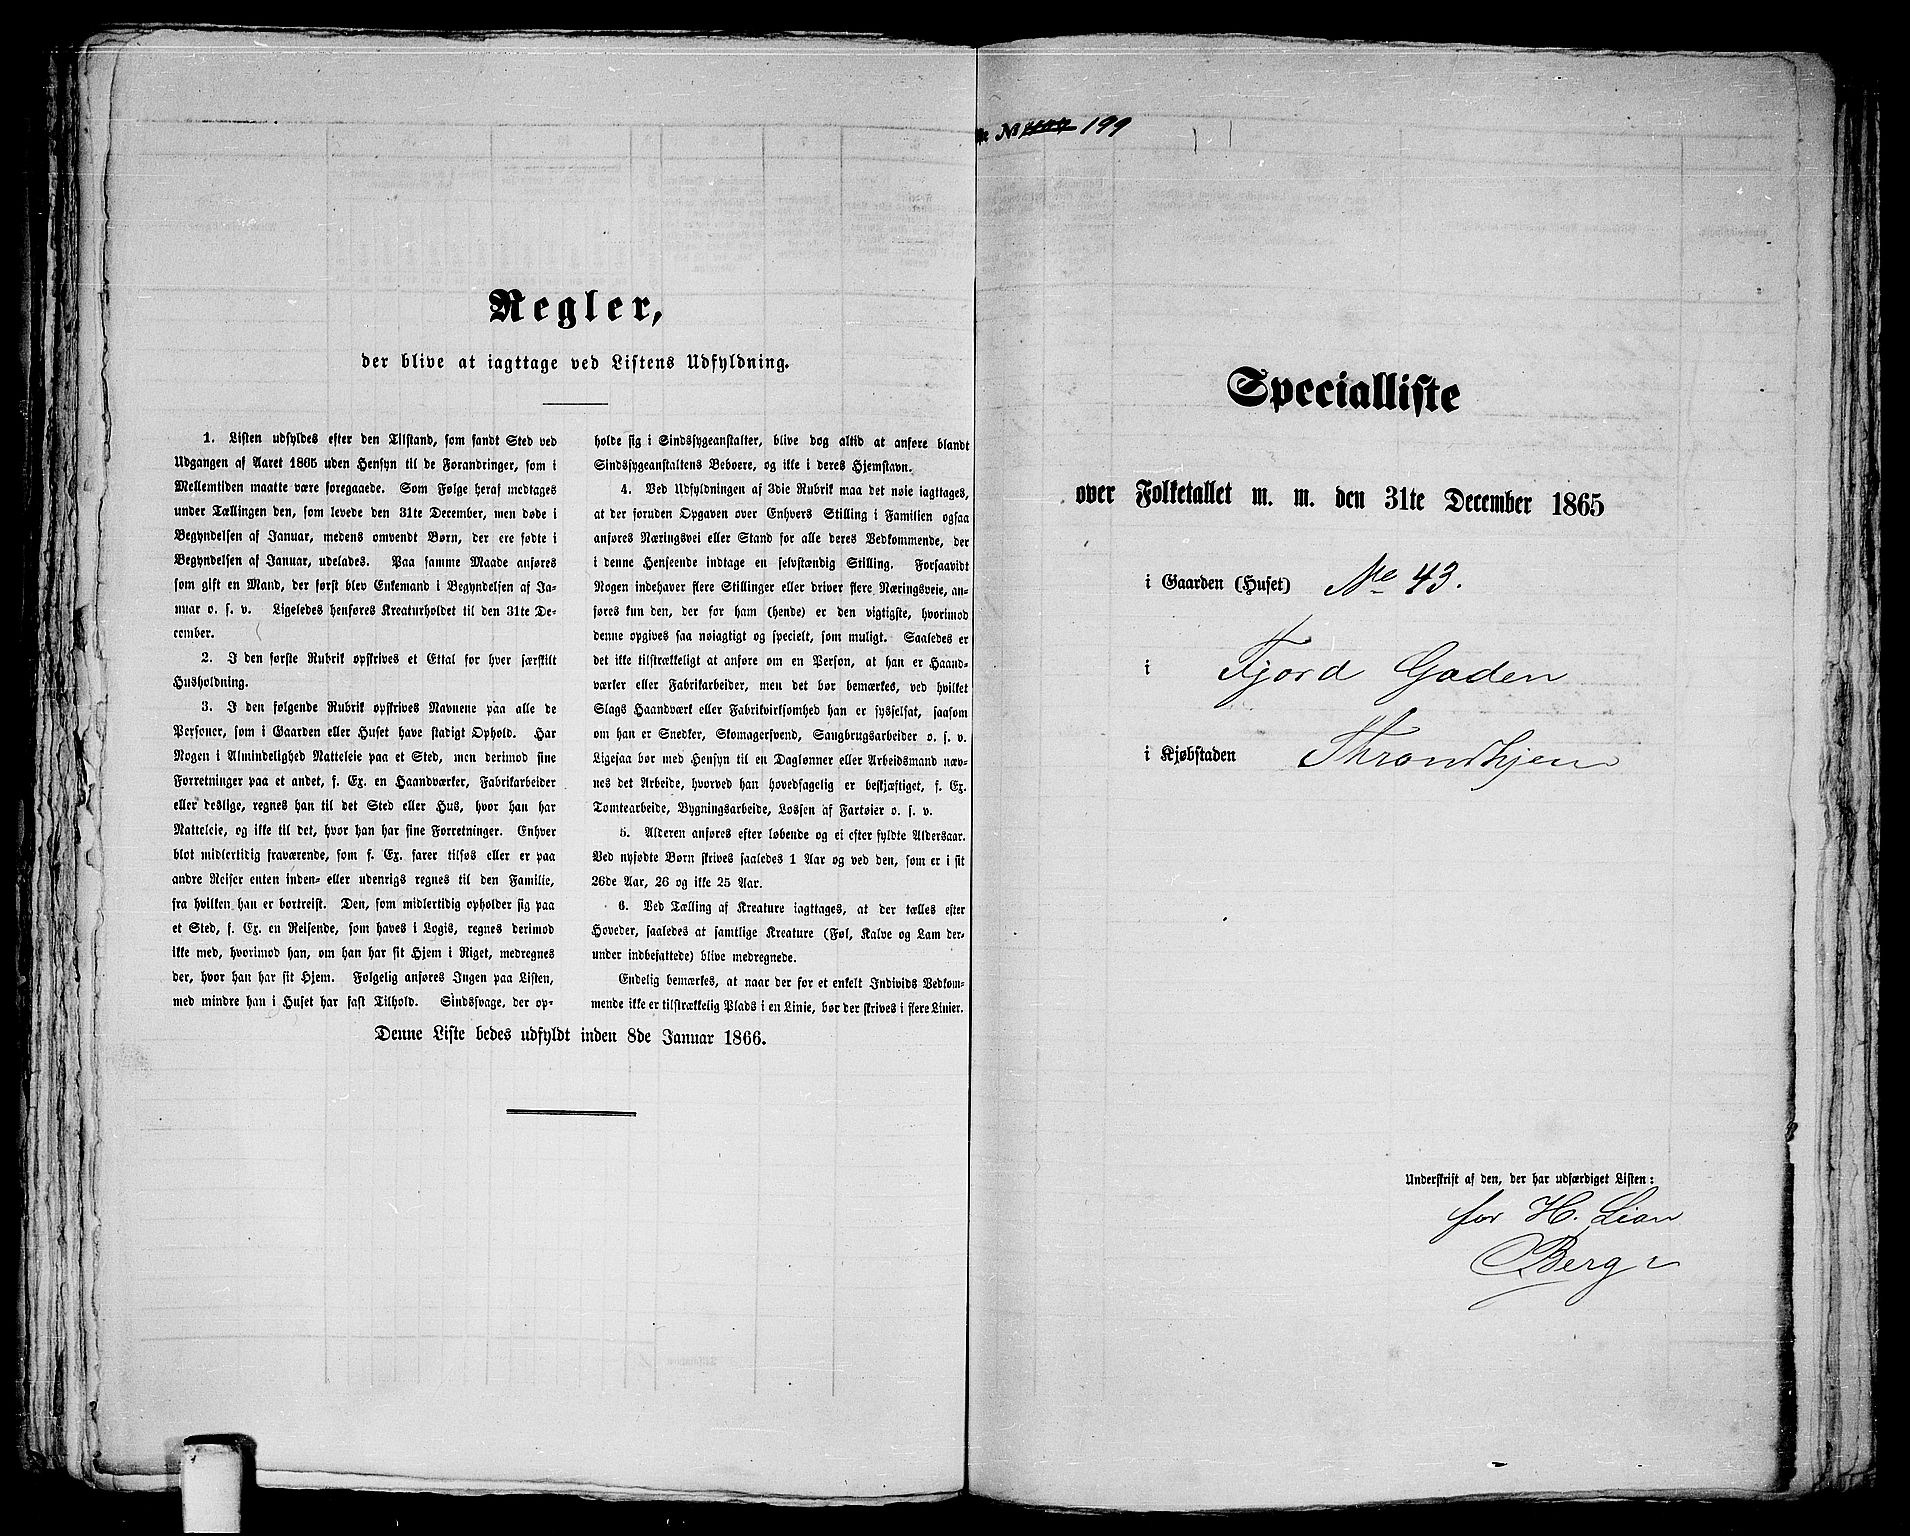 Regler,
der blive at iagttage ved Listens Udfyldning.
1. Listen udfyldes efter den Tilstand, som fandt Sted ved
Udgangen af Aaret 1865 uden Hensyn til de Forandringer, som i
Mellemtiden maatte være foregaaede. Som Følge heraf medtages
under Tællingen den, som levede den 31te December, men døde i
Begyndelsen af Januar, medens omvendt Børn, der ere fødte i
Begyndelsen af Januar, udelades. Paa samme Maade anføres
som gift en Mand, der først blev Enkemand i Begyndelsen af Ja-
nuar o. s. v. Ligeledes henføres Kreaturholdet til den 31te De-
cember.
2. I den første Rubrik opskrives et Ettal for hver særskilt
Husholdning.
3. I den følgende Rubrik opskrives Navnene paa alle de
Personer, som i Gaarden eller Huset have stadigt Ophold. Har
Nogen i Almindelighed Natteleie paa et Sted, men derimod sine
Forretninger paa et andet, f. Ex. en Haandværker, Fabrikarbeider
eller deslige, regnes han til det Sted eller Hus, hvor han har
Natteleie, og ikke til det, hvor han har sine Forretninger. Enhver
blot midlertidig fraværende, som f. Ex. farer tilsøs eller er paa
andre Reiser enten inden- eller udenrigs regnes til den Familie,
fra hvilken han er bortreist. Den, som midlertidig opholder sig paa
et Sted, f. Ex. en Reisende, som haves i Logis, regnes derimod
ikke med, hvorimod han, om han har sit Hjem i Riget, medregnes
der, hvor han har sit Hjem. Følgelig anføres Ingen paa Listen,
med mindre han i Huset har fast Tilhold. Sindssvage, der op-
holde sig i Sindssygeanstalter, blive dog altid at anføre blandt
Sindssygeanstaltens Beboere, og ikke i deres Hjemstavn.
4. Ved Udfyldningen af 3die Rubrik maa det nøie iagttages,
at der foruden Opgaven over Enhvers Stilling i Familien ogsaa
anføres Næringsvei eller Stand for alle deres Vedkommende, der
i denne Henseende indtage en selvstændig Stilling. Forsaavidt
Nogen indehaver flere Stillinger eller driver flere Næringsveie, an-
føres kun den, der for ham (hende) er den vigtigste, hvorimod
denne opgives saa nøiagtigt og specielt, som muligt. Saaledes er
det ikke tilstrækkeligt at anføre om en Person, at han er Haand-
værker eller Fabrikarbeider, men det bør bemærkes, ved hvilket
Slags Haandværk eller Fabrikvirksomhed han er sysselsat, saasom
om han er Snedker, Skomagersvend, Saugbrugsarbeider o. s. v.
Ligesaa bør med Hensyn til en Daglønner eller Arbeidsmand næv-
nes det Arbeide, hvorved han hovedsagelig er beskjæftiget, f. Ex.
Tomtearbeide, Bygningsarbeide, Lossen af Fartøier o. s. v.
5. Alderen anføres efter løbende og ei efter fyldte Aldersaar.
Ved nyfødte Børn skrives saaledes 1 Aar og ved den, som er i sit
26de Aar, 26 og ikke 25 Aar.
6. Ved Tælling af Kreature iagttages, at der tælles efter
Hoveder, saaledes at samtlige Kreature (Føl, Kalve og Lam der-
under indbefattede) blive medregnede.
Endelig bemærkes, at naar der for et enkelt Individs Vedkom-
mende ikke er tilstrækkelig Plads i en Linie, bør der skrives i flere Linier.
Denne Liste bedes udfyldt inden 8de Januar 1866.
No 199
Specialliste
over Folketallet m. m. den 31te December 1865
i Gaarden (Huset) No 43.
i Fjord Gaden
i Kjøbstaden Throndhjem
Underskrift af den, der har udfærdiget Listen:
for H. Lian
Berg